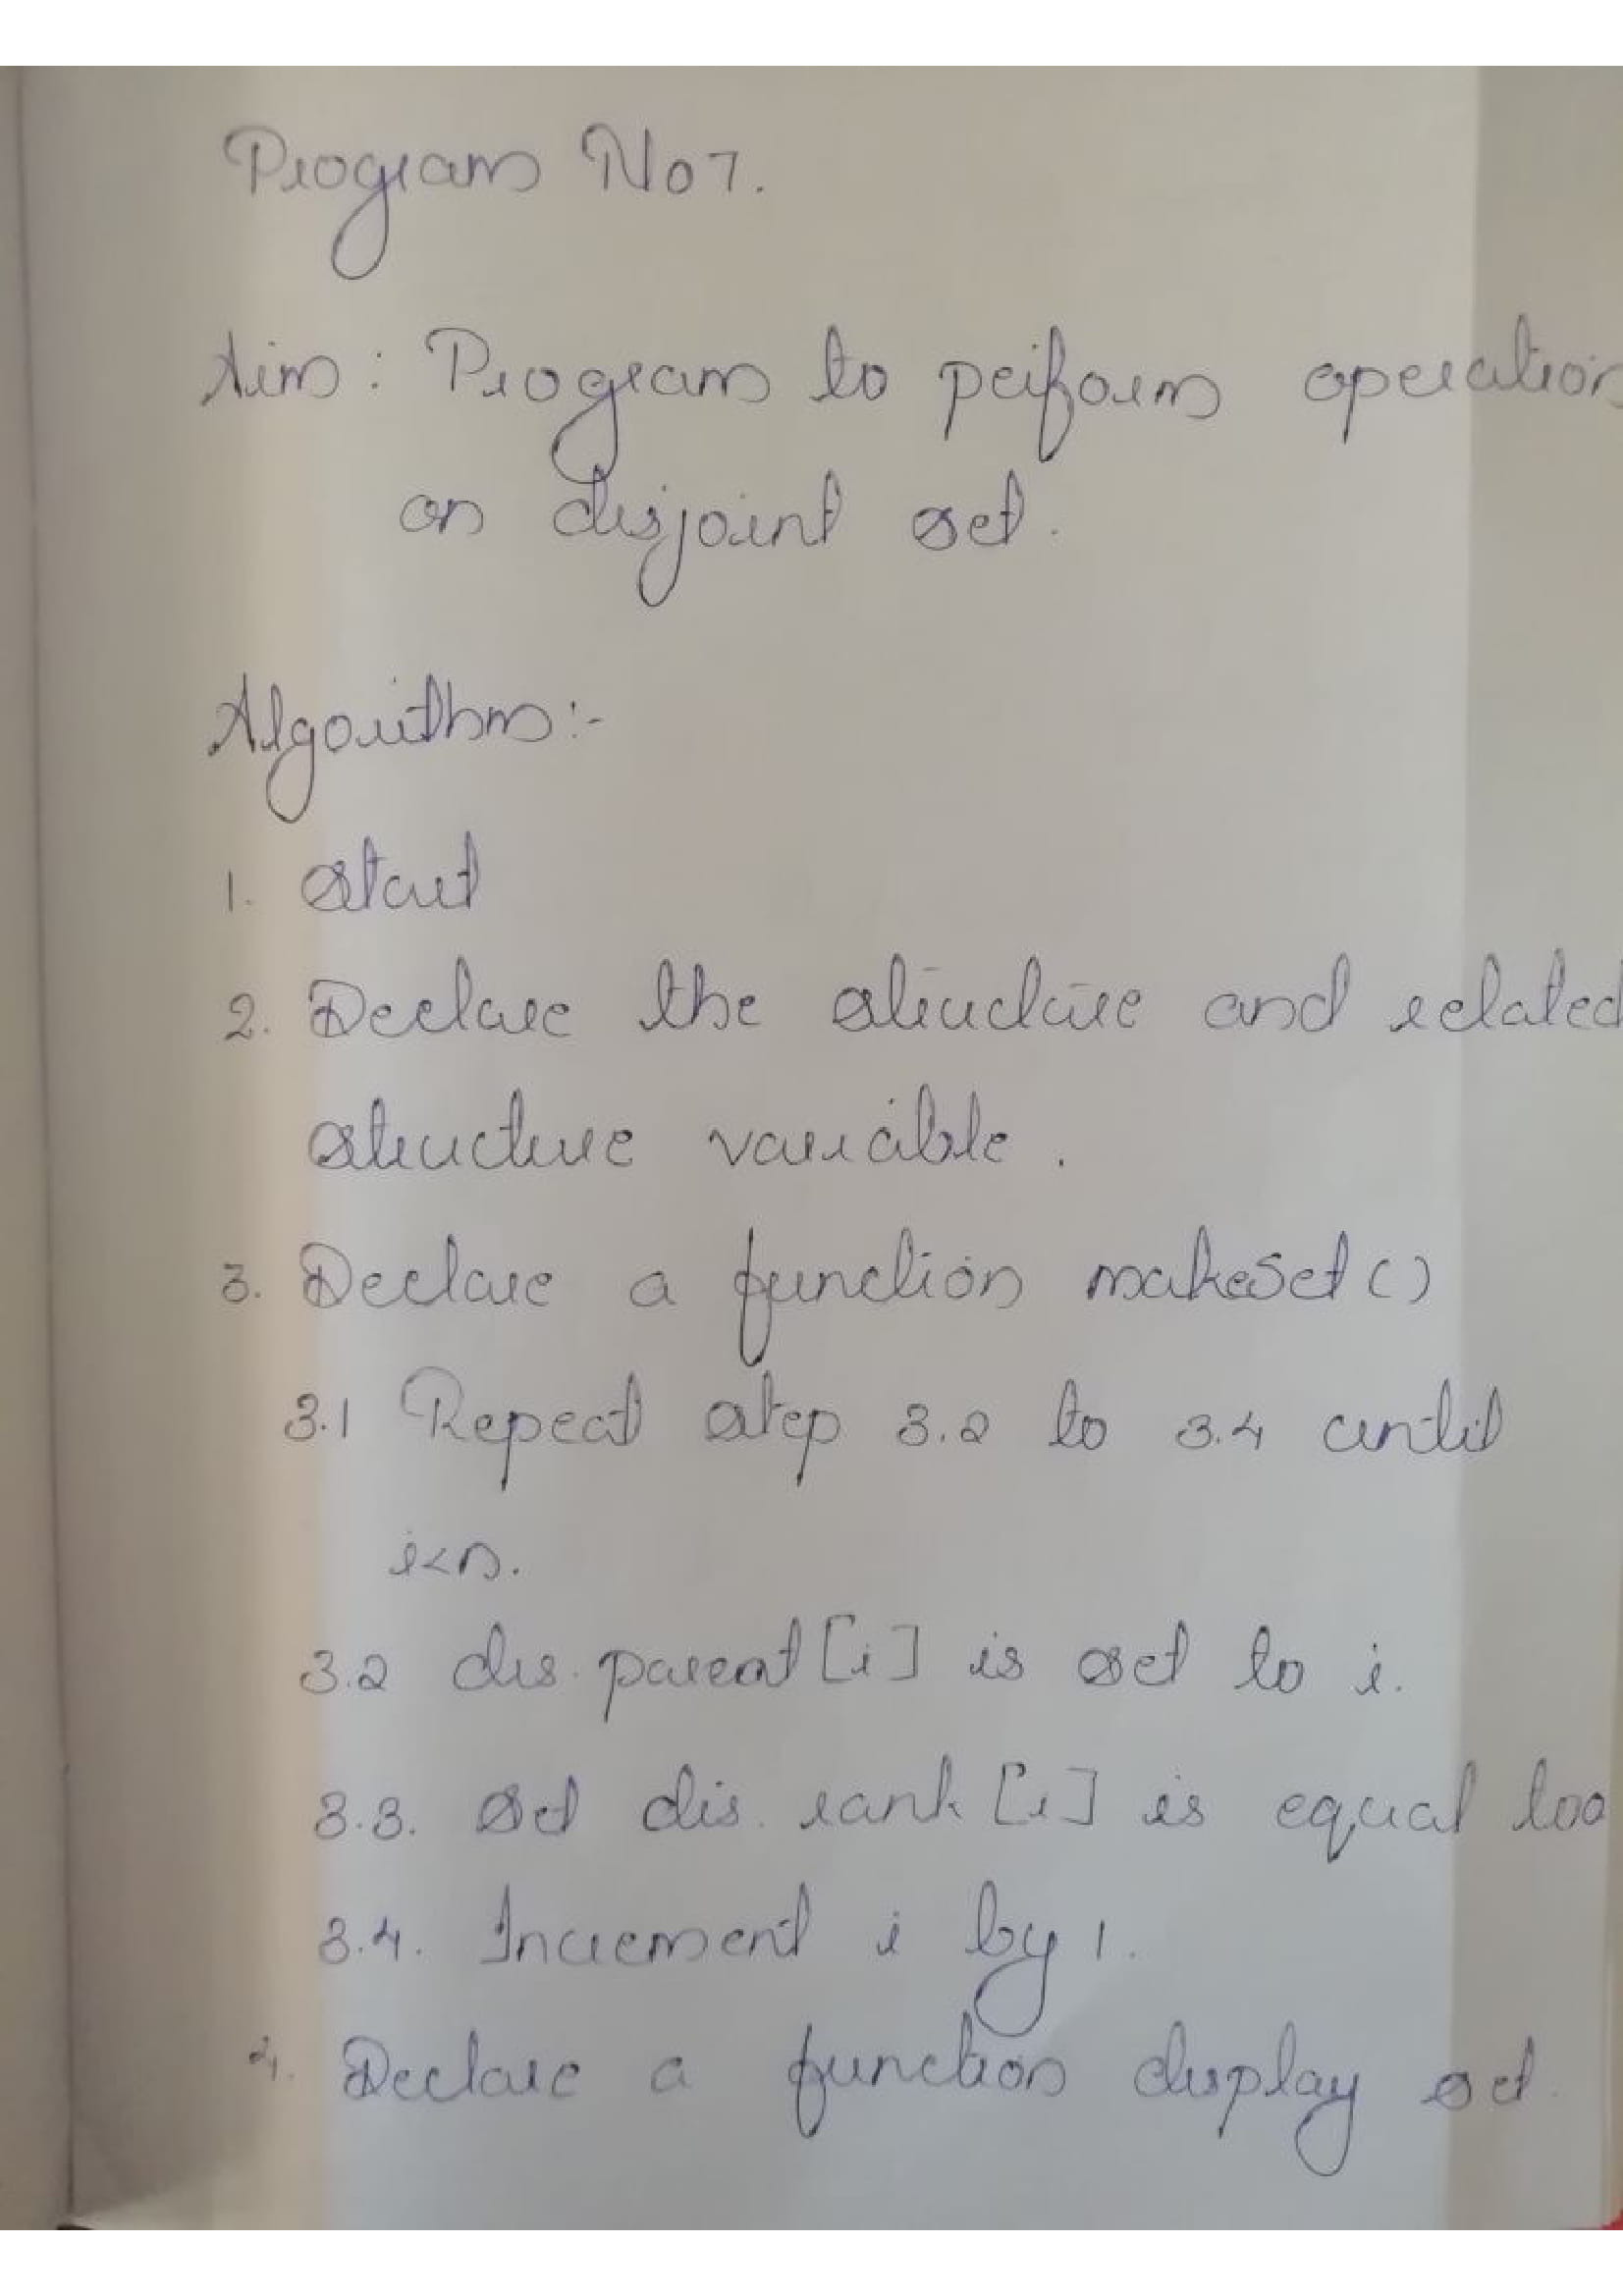 Program No 7.
Aim : Program to perform operation
on disjoint set.
Algorithm:-
1. Start
2. Declare the structure and related
structure variable.
3. Declare a function makeSet()
3.1 Repeat step 3.2 to 3.4 until
i<n.
3.2 dis.parent[i] is set to i.
3.3. Set dis.rank[i] is equal to 0
3.4. Increment i by 1.
4. Declare a function display set.